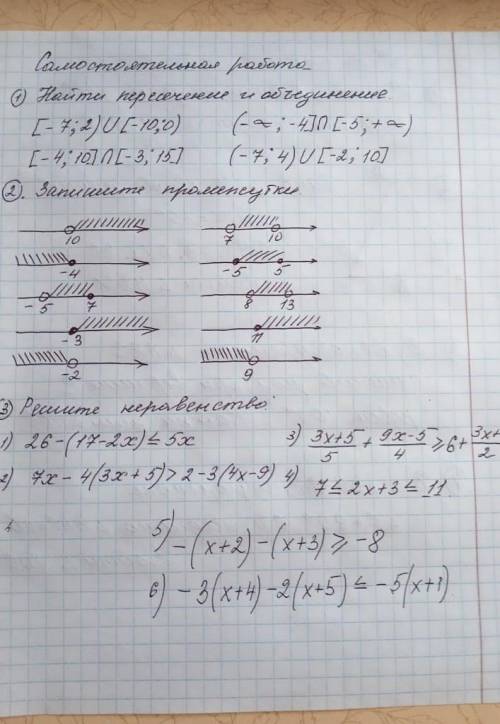 Самостоятельная работа
① Найти пересечение и объединение.
[-7; 2) ∪ [-10; 0) (-∞; -4] ∩ [-5; +∞)
[-4; 10] ∩ [-3; 15] (-7; 4) ∪ [-2; 10]
②. Запишите промежутки
10 7 10
-4 -5 5
-5 7 8 13
-3 11
-2 9
③ Решите неравенство:
1) 26-(17-2x) ≤ 5x 3) (3x+5)/5 + (9x-5)/4 ≥ 6 + 3x+/2
2) 7x - 4(3x+5) > 2-3(4x-9) 4) 7 ≤ 2x+3 ≤ 11
5) -(x+2) -(x+3) ≥ -8
6) -3(x+4) -2(x+5) ≤ -5(x+1)